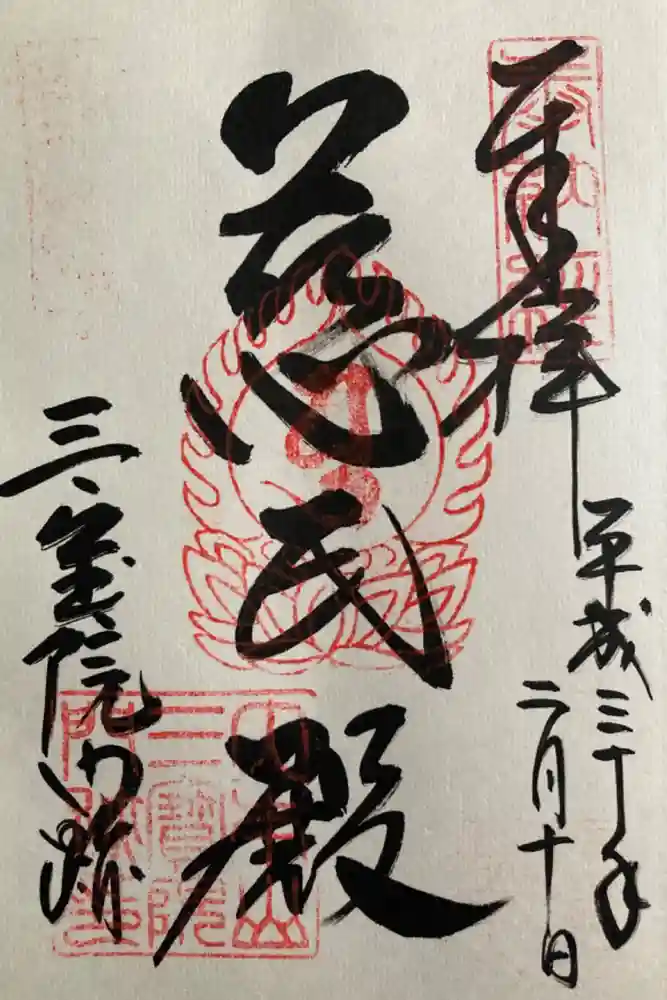 奉拝
平成三十年
二月十日
慈氏殿
三宝院門跡
三寶院